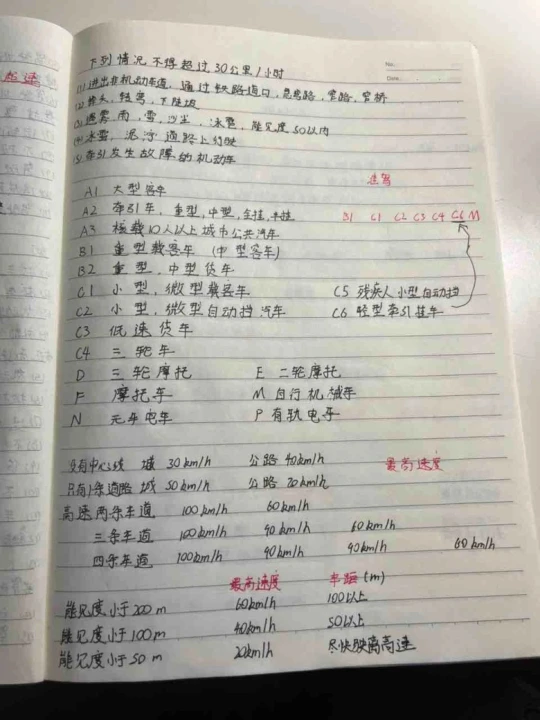 No.
Date.
下列情况不得超过30公里/小时
(1) 进出非机动车道，通过铁路道口，急弯路，窄路，窄桥
(2) 掉头，转弯，下陡坡
(3) 遇雾，雨，雪，沙尘，冰雹，能见度50以内
(4) 冰雪，泥泞道路上行驶
(5) 牵引发生故障的机动车
准驾
A1 大型客车
A2 牵引车，重型，中型，全挂，半挂 B1 C1 C2 C3 C4 C6 M
A3 核载10人以上城市公共汽车
B1 重型载客车（中型客车）
B2 重型，中型货车
C1 小型，微型载客车 C5 残疾人小型自动挡
C2 小型，微型自动挡汽车 C6 轻型牵引挂车
C3 低速货车
C4 三轮车
D 三轮摩托 E 二轮摩托
F 摩托车 M 自行机械车
N 无轨电车 P 有轨电车
没有中心线 城 30km/h 公路 40km/h 最高速度
只有1条道路 城 50km/h 公路 70km/h
高速两条车道 100km/h 60km/h
三条车道 100km/h 90km/h 60km/h
四条车道 100km/h 90km/h 90km/h 60km/h
最高速度 车距 (m)
能见度小于200m 60km/h 100以上
能见度小于100m 40km/h 50以上
能见度小于50m 20km/h 尽快驶离高速